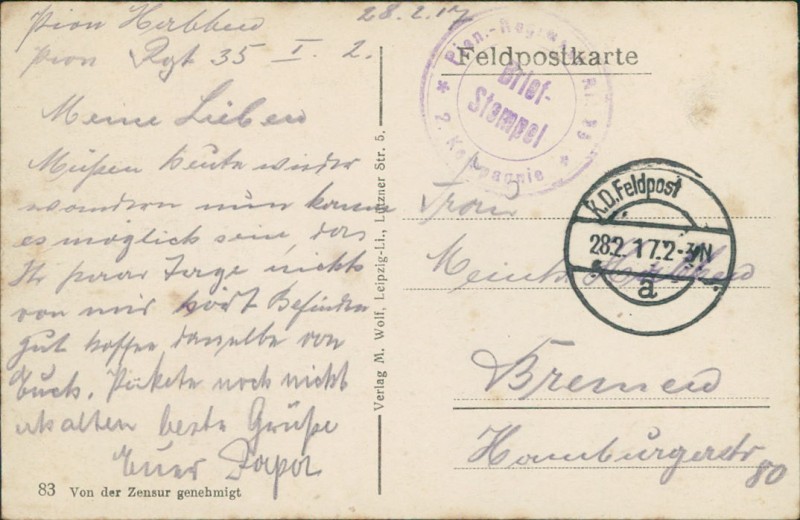 Pion Herbben 28.2.17
Pion Rgt 35 I. 2.
Meine Lieben
Müßen heute wieder
wandern nun kann
es möglich sein, das
Ihr paar Tage nichts
von mir hört Befinden
gut hoffe dasselbe von
Euch. Pakete noch nicht
erhalten beste Grüße
Euer Papa
83 Von der Zensur genehmigt
Verlag M. Wolf, Leipzig-Li., Lützner Str. 5.
Feldpostkarte
Pion.-Regiment No. 35
Brief-
Stempel
* 2. Kompagnie *
K.D. Feldpost
28.2.17.2-3N
a
Frau
Bremen
Hamburgerstr
80